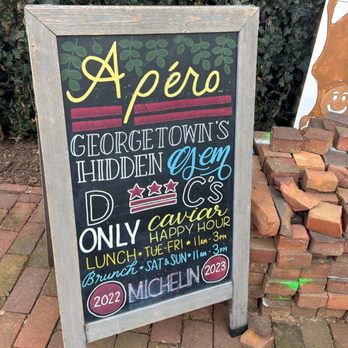 Apéro
GEORGETOWN'S
HIDDEN Gem
D C's
ONLY caviar HAPPY HOUR
LUNCH • TUE-FRI • 11am-3pm
Brunch • SAT & SUN • 11am-3pm
2022 MICHELIN 2023